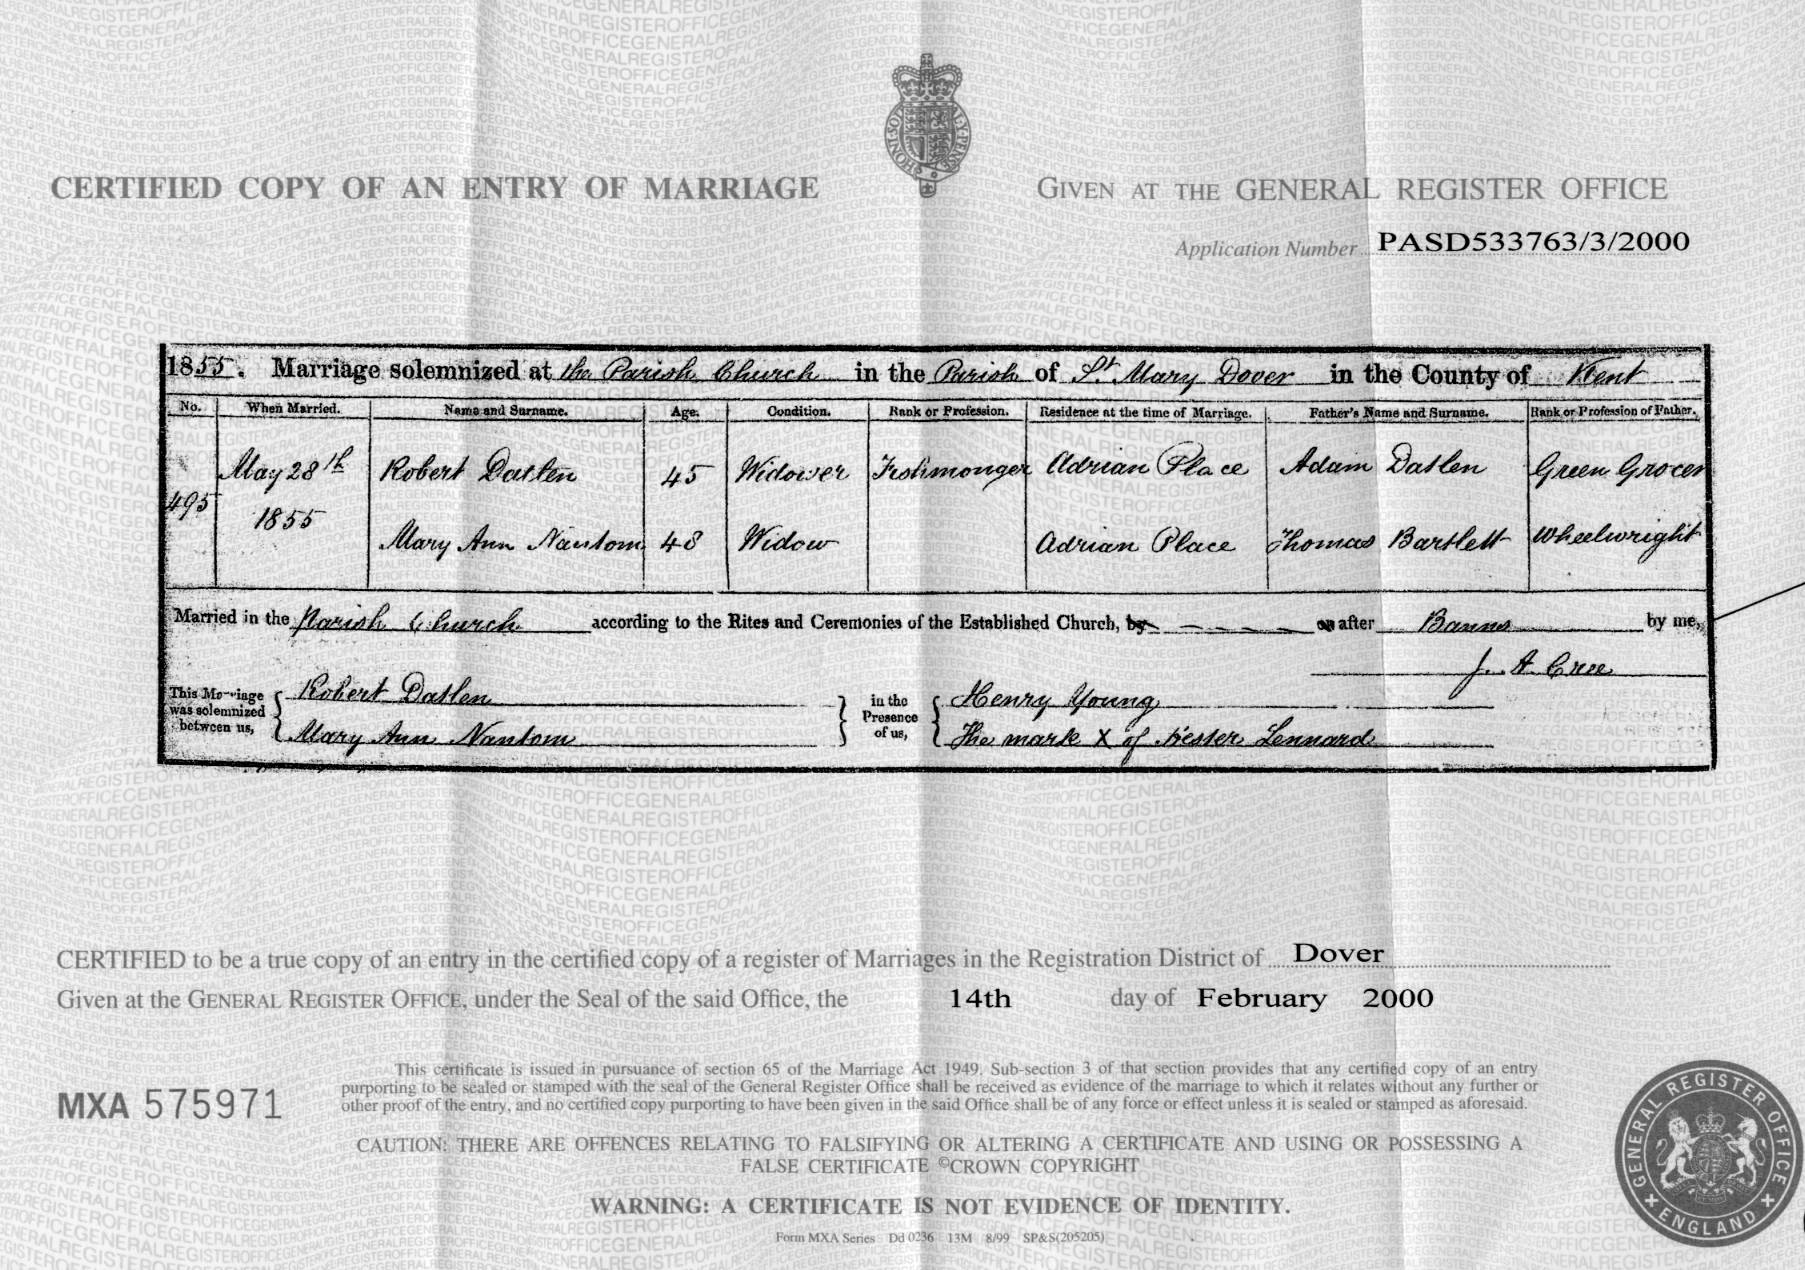 CERTIFIED COPY OF AN ENTRY OF MARRIAGE
GIVEN AT THE GENERAL REGISTER OFFICE
Application Number PASD533763/3/2000
1855. Marriage solemnized at the Parish Church in the Parish of St Mary Dover in the County of Kent
No. When Married. Name and Surname. Age. Condition. Rank or Profession. Residence at the time of Marriage. Father's Name and Surname. Rank or Profession of Father.
495 May 28th 1855 Robert Datlen 45 Widower Fishmonger Adrian Place Adam Datlen Green Grocer
Mary Ann Nantom 48 Widow Adrian Place Thomas Bartlett Wheelwright
Married in the Parish Church according to the Rites and Ceremonies of the Established Church, by or after Banns by me,
J. A Cree
This Marriage was solemnized between us, Robert Datlen in the Presence of us, Henry Young
Mary Ann Nantom The mark X of Hester Lennard
CERTIFIED to be a true copy of an entry in the certified copy of a register of Marriages in the Registration District of Dover
Given at the GENERAL REGISTER OFFICE, under the Seal of the said Office, the 14th day of February 2000
This certificate is issued in pursuance of section 65 of the Marriage Act 1949. Sub-section 3 of that section provides that any certified copy of an entry
purporting to be sealed or stamped with the seal of the General Register Office shall be received as evidence of the marriage to which it relates without any further or
other proof of the entry, and no certified copy purporting to have been given in the said Office shall be of any force or effect unless it is sealed or stamped as aforesaid.
MXA 575971
CAUTION: THERE ARE OFFENCES RELATING TO FALSIFYING OR ALTERING A CERTIFICATE AND USING OR POSSESSING A
FALSE CERTIFICATE ©CROWN COPYRIGHT
WARNING: A CERTIFICATE IS NOT EVIDENCE OF IDENTITY.
Form MXA Series Dd 0236 13M 8/99 SP&S(205205)
GENERAL REGISTER OFFICE
ENGLAND